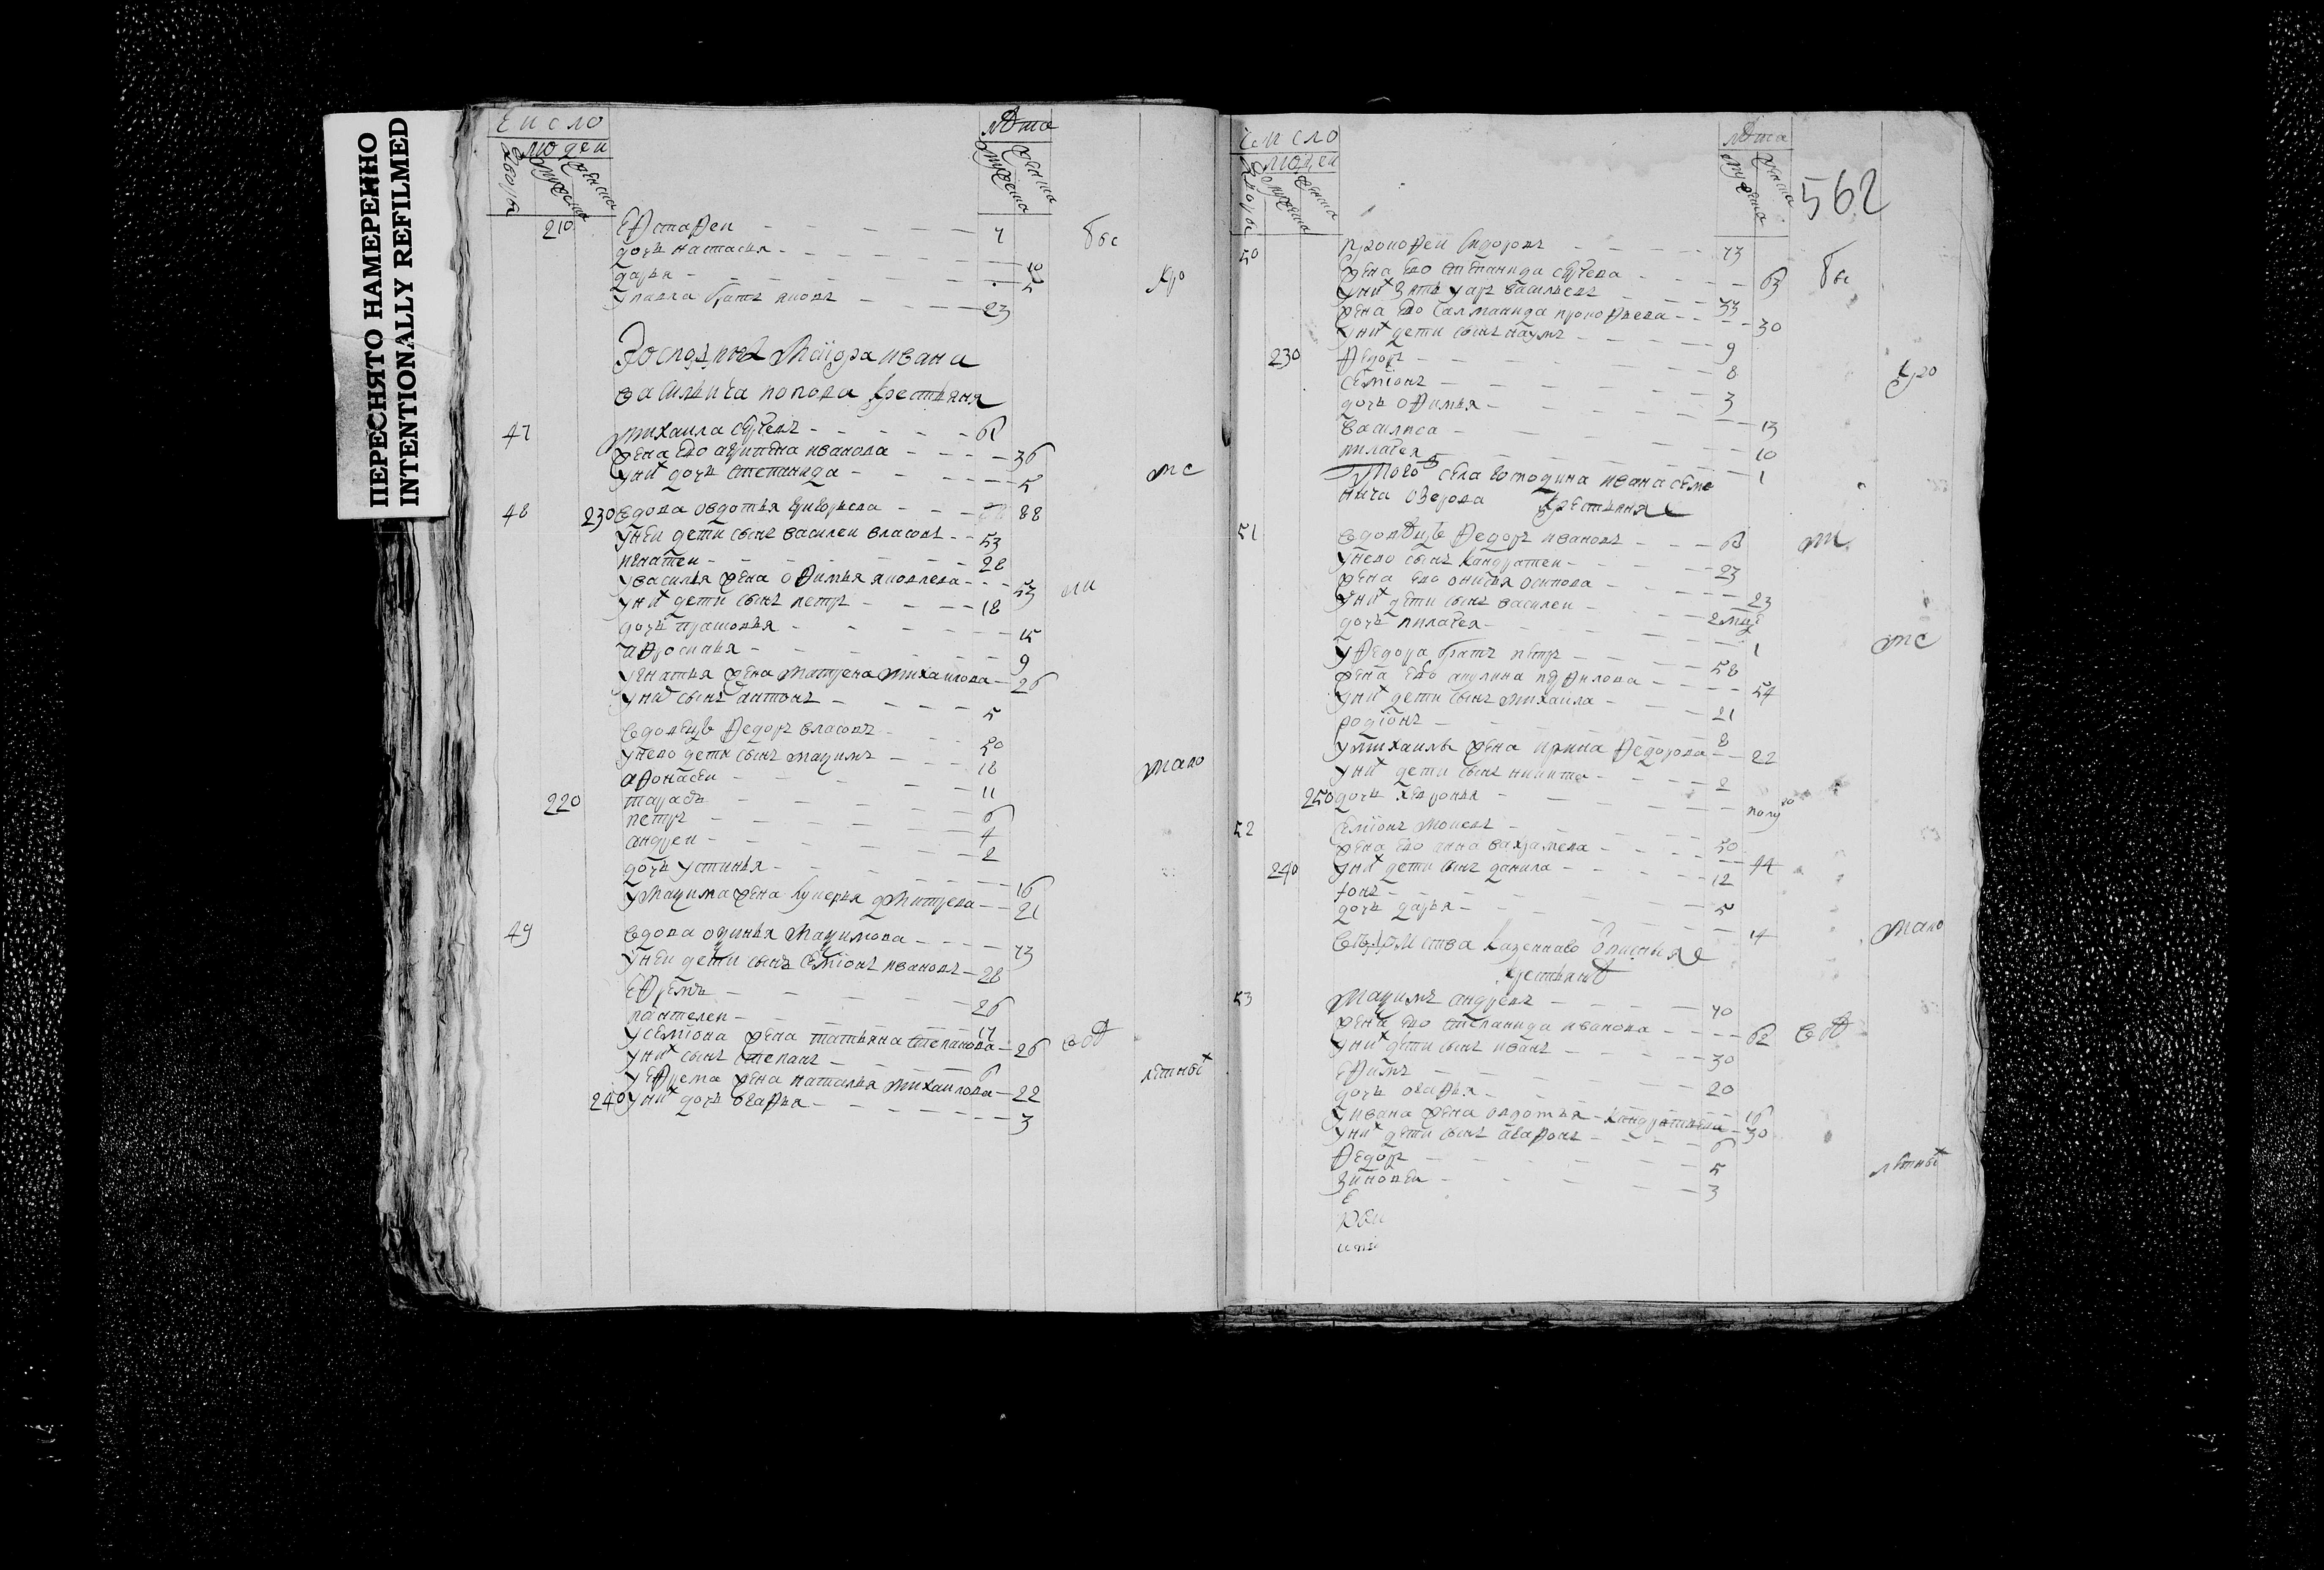 ПЕРЕСНЯТО НАМЕРЕННО
INTENTIONALLY REFILMED
Число
людей
лѣта
дворы
мужеска
женска
мужеска
женска
210 Евстафеи 7
дочь настасья 10
дарья 5
у павла братъ яковъ 23
бы с
кро
Господина маиора ивана
васильича попова крестьяня
47 михаила сергеевъ 61
жена ево агрипена иванова 36
у них дочь степанида 5
те
48 230 вдова овдотья григорьева 88
у неи дети сынъ василеи власовъ 53
игнатеи 28
у василья жена офимья яковлева 53
у них дети сынъ петръ 18
дочь прасковья 15
афросинья 9
у игнатья жена матрена михаилова 26
у них сынъ антонъ 5
ии
вдовецъ федоръ власовъ 50
у нево дети сынъ макимъ 18
афонасеи 11
220 тарасъ 6
петръ 4
андреи 2
дочь устинья 16
у макима жена лукерья дмитрева 21
мало
49 вдова оринья макимова 73
у неи дети сынъ семионъ ивановъ 28
ефремъ 26
пантелеи 17
у семиона жена татьяна степанова 26
у них сынъ степанъ 6
у ефрема жена наталья михаилова 22
240 у них дочь агафья 3
вдѣ
лѣтных
Число
людей
лѣта
дворы
мужеска
женска
мужеска
женска
562
50 прокофеи сидоровъ 73
жена ево степанида сергеева 63
у них зять уаръ васильевъ 33
жена ево саламанида прокофьева 30
у них дети сынъ наумъ 9
230 федоръ 8
семионъ 3
дочь офимья
василиса 13
пилагея 10
1
бы
кро
того ж села господина ивана семе
нича озерова крестьяня
51 вдовецъ федоръ ивановъ 63
у нево сынъ кандратеи 23
жена ево онисья осипова 23
у них дети сынъ василеи 2 мцъ
дочь пилагея 1
у федора братъ петръ 58
жена ево акулина панфилова 54
у них дети сынъ михаила 21
родионъ 8
у михаилы жена ирина федорова 22
у них дети сынъ никита 2
250 дочь хевронья полу го
те
52 семионъ моисевъ 50
жена ево анна вахрамева 44
240 у них дети сынъ данила 12
ионъ 5
дочь дарья 14
мало
ведомства казеннаво описныя
крестьянѣ
53 макимъ андревъ 70
жена ево степанида иванова 62
у них дети сынъ иванъ 30
ефимъ 20
дочь агафья 16
у ивана жена овдотья кандратьева 30
у них дети сынъ агафонъ 6
федоръ 5
зиновеи 3
вдѣ
лѣтных